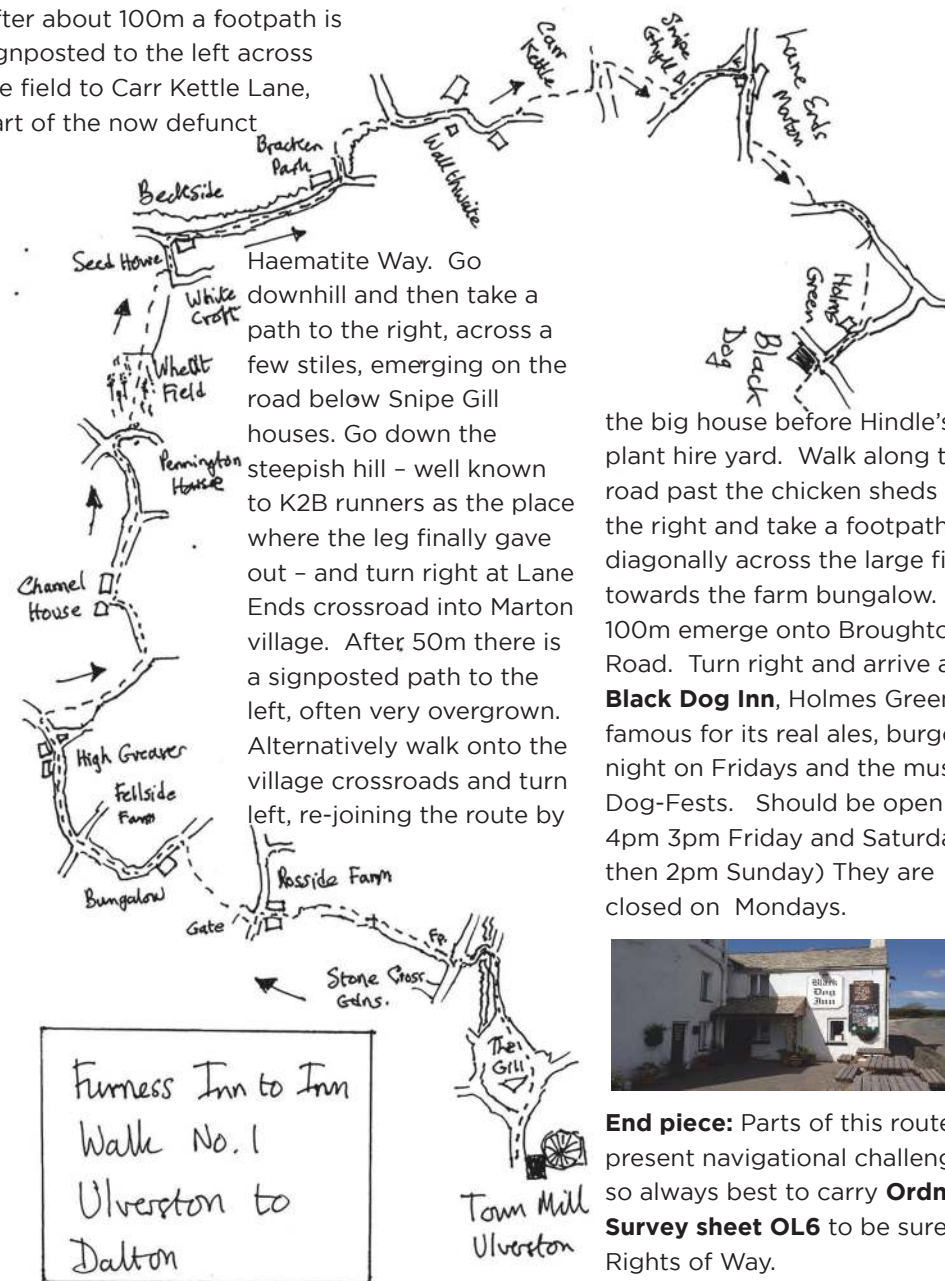 fter about 100m a footpath is
gnposted to the left across
e field to Carr Kettle Lane,
art of the now defunct
Haematite Way. Go
downhill and then take a
path to the right, across a
few stiles, emerging on the
road below Snipe Gill
houses. Go down the
steepish hill – well known
to K2B runners as the place
where the leg finally gave
out – and turn right at Lane
Ends crossroad into Marton
village. After 50m there is
a signposted path to the
left, often very overgrown.
Alternatively walk onto the
village crossroads and turn
left, re-joining the route by
the big house before Hindle's
plant hire yard. Walk along t
road past the chicken sheds
the right and take a footpath
diagonally across the large fi
towards the farm bungalow.
100m emerge onto Broughto
Road. Turn right and arrive a
Black Dog Inn, Holmes Green
famous for its real ales, burge
night on Fridays and the mus
Dog-Fests. Should be open
4pm 3pm Friday and Saturda
then 2pm Sunday) They are
closed on Mondays.
Black
Dog
Inn
End piece: Parts of this route
present navigational challeng
so always best to carry Ordn
Survey sheet OL6 to be sure
Rights of Way.
Carr
Kettle
Snipe
Ghyll
Lane Ends
Marton
Bracken
Park
Wallthwaite
Beckside
Seed House
White
Croft
Wheat
Field
Pennington
House
Holms
Green
Black
Dog
Charnel
House
High Greaves
Fellside
Farm
Bungalow
Gate
Rosside Farm
Fp.
Stone Cross
Gdns.
The
Gill
Town Mill
Ulverston
Furness Inn to Inn
Walk No. 1
Ulverston to
Dalton